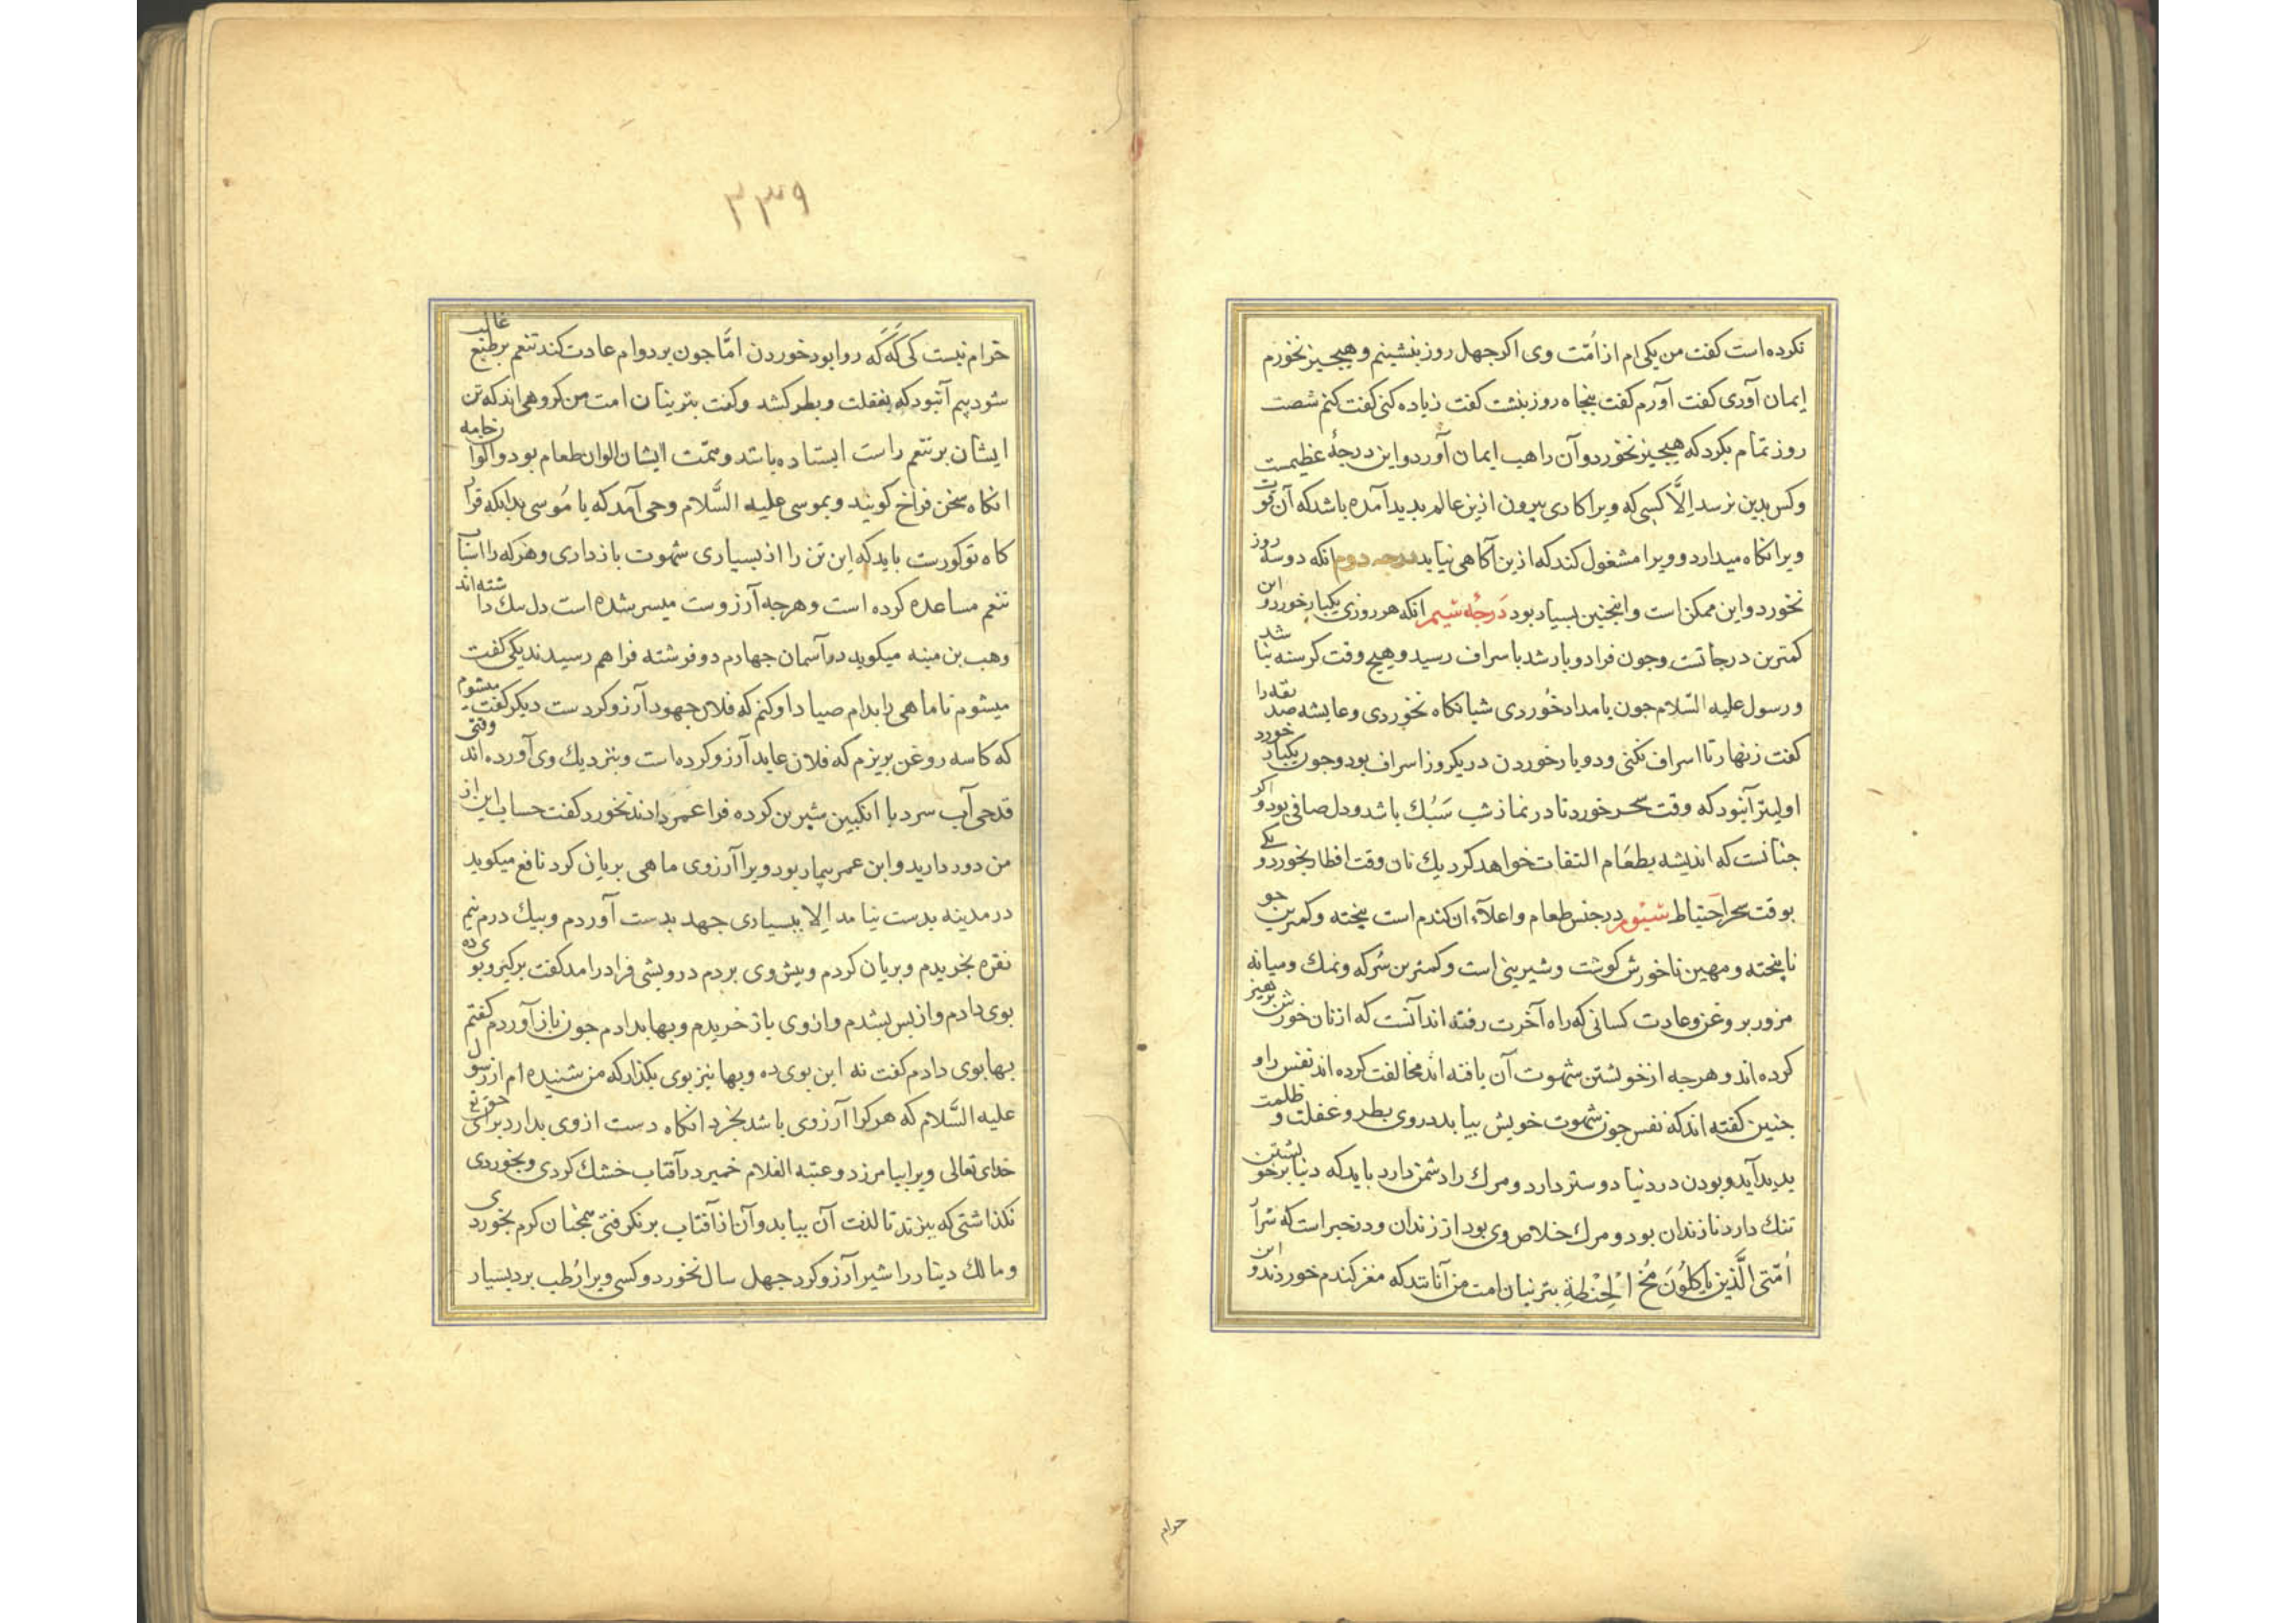 نکرده است کفت من یکی ام از اُمّت وی اکر جهل روز بنشینم و هیجیز نخورم
ایمان آوری کفت آورم کفت بنجاه روز بنشت کفت زیاده کنی کفت کنم شصت
روز تمام بکرد که هیجیز نخورد و آن راهب ایمان آورد و این درجهٔ عظیمست
و کس بدین نرسد اِلَّا کسی که ویرا کاری بیرون ازین عالم بدید آمده باشد که آن قوت
ویرا نکاه میدارد و ویرا مشغول کند که ازین آکاهی نیابد درجه دوم انکه دو سه روز
نخورد و این ممکن است و اینجنین بسیار بود دَرجهٔ سیم انکه هر روزی یکبار خورد و این
کمترین درجاتست و جون فرا دو بار شد باسراف رسید و هیج وقت کرسنه نباشد
و رسول علیه السّلام جون بامداد خُوردی شبانکاه نخوردی و عایشه صدیقه را
کفت زنهار تا اسراف نکنی و دو بار خوردن در یکروز اسراف بود و جون یکبار خورد
اولیتر آنبود که وقت سحر خورد تا در نماز شب سَبُك باشد و دل صافی بود و اکر
جنانست که اندیشه بطعَام التفات خواهد کرد یك نان وقت افطار بخورد و یکی
بوقت سحر احَتیاط سیوم در جنس طعام و اعلاَء ان کندم است بیخته و کمترین جو
نابیخته و مهین ناخورش کوشت و شیرینی است و کمترین سُرکه و نمك و میانه
مزور بروغن و عادت کسانی که راه آخرت رفته اند آنست که از نان خورش برهیز
کرده اند و هرجه از خویشتن شهوت آن یافته اند مخالفت کرده اند نفس را و
جنین کفته اند که نفس جون شهوت خویش بیابد در وی بطر و غفلت و ظلمت
بدید آید و بودن در دنیا دوستر دارد و مرك را دشمن دارد باید که دنیا بر خویشتن
تنك دارد تا زندان بود و مرك خلاص وی بود از زندان و در خبر است که شرار
اُمّتی الَّذین یَاکلُوُنَ مُخّ الْحِنْطةِ بترنیان امت من آنانند که مغز کندم خورند و این
حرام
۳۳۹
حَرام نیست کی کَه کَه روا بود خوردن امَّا جون بر دوام عادت کند تنعم بر طبع غالب
شود بیم آنبود که بغفلت و بطر کشد و کفت بترینان امت من کروهی اند که تن
ایشان بر تنعم راست ایستاده باشد و همّت ایشان الوان طعام بود و الوان جامه
انکاه سخن فراخ کویند و بموسی علیه السَّلام وحی آمد که یا مُوسی بدانکه قرار
کاه تو کورست باید که اِین تن را از بسیاری شهوت باز داری و هر که را اسباب
تنعم مساعده کرده است و هرجه آرزوست میسر شده است دل سك داشته اند
وهب بن منبه میکوید در آسمان جهارم دو فرشته فرا هم رسیدند یکی کفت
میشوم تا ماهی را بدام صیاد اوکنم که فلان جهود آرزو کردست دیکر کفت میشوم
که کاسه روغن بریزم که فلان عابد آرزو کرده است و بنزدیك وی آورده اند وقتی
قدحی آب سرد با انکبین شیرین کرده فرا عمر دادند نخورد کفت حساب این از
من دور دارید و ابن عمر بیمار بود ویرا آرزوی ماهی بریان کرد نافع میکوید
در مدینه بدست نیامد اِلا ببسیاری جهد بدست آوردم و بیك درم نیم
نقره بخریدم و بریان کردم و بیش وی بردم درویشی فرا درامد کفت برکیر و بوی ده
بوی دادم و از بس بشدم و از وی باز خریدم و بها بدادم جون باز آوردم کفتم
بها بوی دادم کفت نه این بوی ده و بها نیز بوی بکذار که من شنیده ام از رسول
علیه السَّلام که هر کرا آرزوی باشد بخرد انکاه دست از وی بدارد برای حق تع
خدای تعالی ویرا بیامرزد و عتبه الغلام خمیر در آفتاب خشك کردی و بخوردی
نکذاشتی که ببزند تا لذت آن بیابد و آن از آفتاب برنکرفتی همجنان کرم بخوردی
و مالك دینار را شیر آرزو کرد جهل سال نخورد و کسی ویرا رُطب برد بسیار